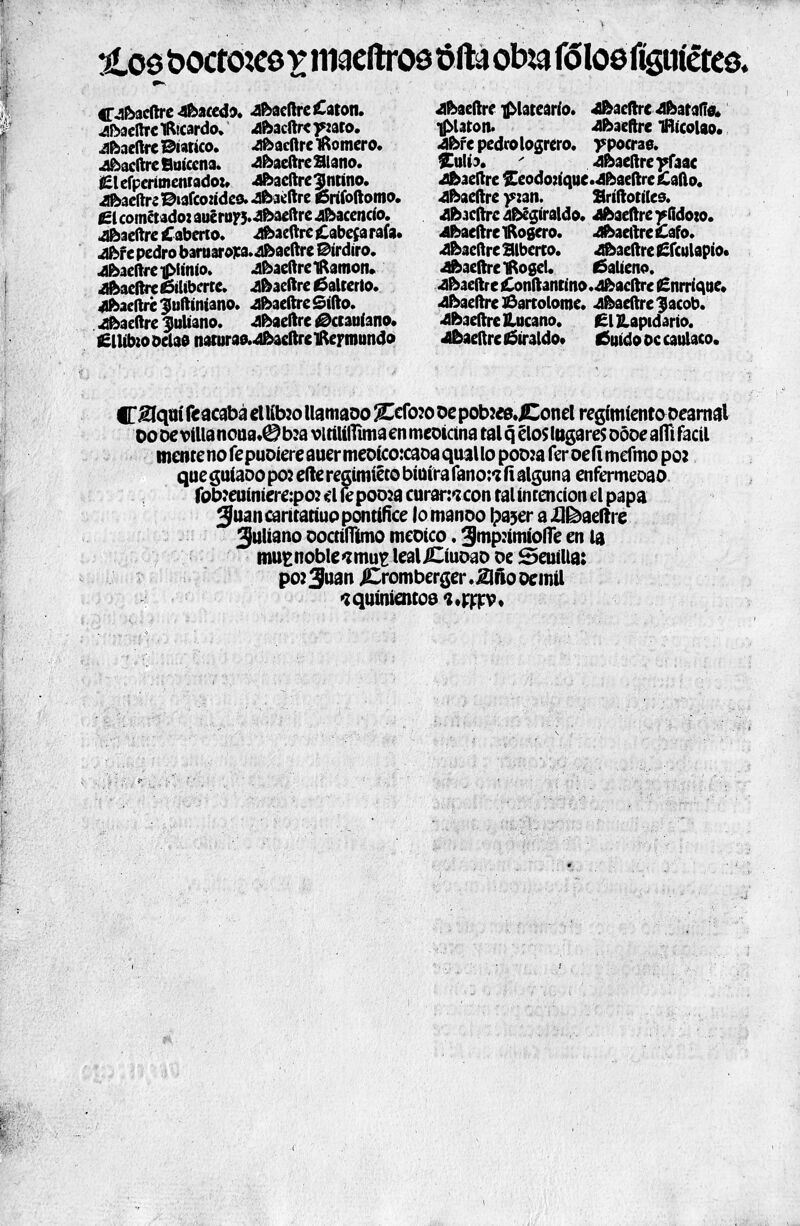 Los doctores y maestros dsta obra sō los siguiētes.
¶ Maestre Macedo. Maestre Caton.
Maestre Ricardo. Maestre yrato.
Maestre Diatico. Maestre Romero.
Maestre Auicena. Maestre Alano.
El esperimentador. Maestre Intino.
Maestre Diascorides. Maestre Grisostomo.
El comētador auēruyz. Maestre Macencio.
Maestre Caberto. Maestre Cabeça rasa.
Mr̄e pedro baruaroxa. Maestre Dirdiro.
Maestre Plinio. Maestre Ramon.
Maestre Giliberte. Maestre Galterio.
Maestre Justiniano. Maestre Sisto.
Maestre Juliano. Maestre Octauiano.
El libro delas naturas. Maestre Reymundo
Maestre Plateario. Maestre Matasis.
Platon. Maestre Nicolao.
Mr̄e pedro logrero. ypocras.
Tulio. Maestre ysaac
Maestre Teodorique. Maestre Casto.
Maestre yran. Aristotiles.
Maestre Mēgiraldo. Maestre ysidoro.
Maestre Rogero. Maestre Caso.
Maestre Alberto. Maestre Esculapio.
Maestre Rogel. Galieno.
Maestre Constantino. Maestre Enrrique.
Maestre Bartolome. Maestre Jacob.
Maestre Lucano. El Lapidario.
Maestre Giraldo. Guido de caulaco.
¶ Aqui se acaba el libro llamado Tesoro de pobres. Con el regimiento de arnal
do de villa noua. Obra vtilissima en medicina tal q̄ ēlos lugares dōde assi facil
mente no se pudiere auer medico: cada qual lo podra ser de si mesmo por
que guiado por este regimiēto biuira sano: ⁊ si alguna enfermedad
sobreuiniere: por el se podra curar: ⁊ con tal intencion el papa
Juan caritatiuo pontifice lo mando hazer a Maestre
Juliano doctissimo medico. Imprimiosse en la
muy noble ⁊ muy leal Ciudad de Seuilla:
por Juan Cromberger. Año de mil
⁊ quinientos ⁊ .xxxv.